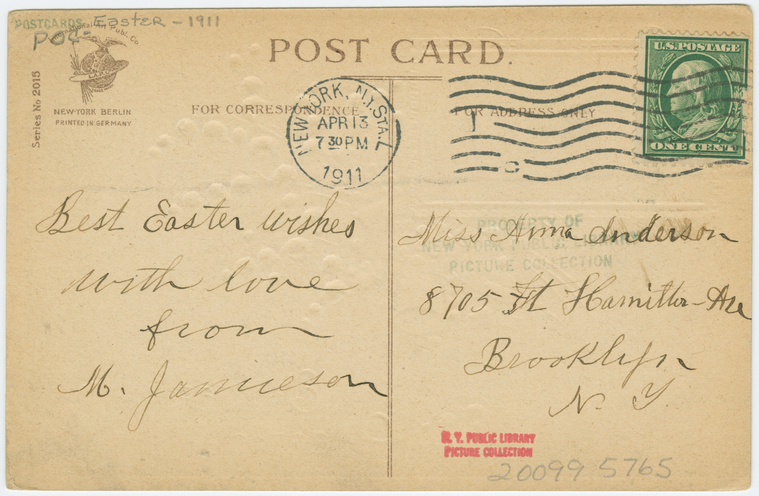 POSTCARDS Easter - 1911
POC-
Series No 2015
NEW-YORK BERLIN
PRINTED IN GERMANY
POST CARD.
FOR CORRESPONDENCE
FOR ADDRESS ONLY
NEW YORK, N.Y. STA. L
APR 13
7 30 PM
1911
U.S. POSTAGE
ONE CENT
Best Easter wishes
with love
from
M. Jamieson
PROPERTY OF
NEW YORK PUBLIC
PICTURE COLLECTION
Miss Anna Anderson
8705 Ft Hamilton Ave
Brooklyn
N. Y.
N. Y. PUBLIC LIBRARY
PICTURE COLLECTION
20099 5765